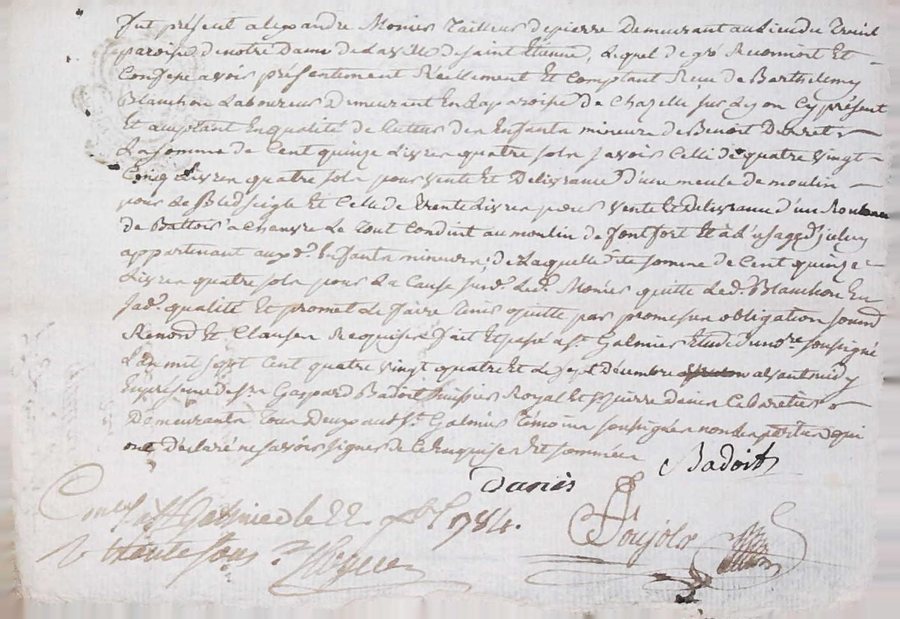 fut présent alexandre Monier Tailleur depierre Demeurant au lieu du Treuil
paroise denotre Dame de La ville de Saint Etienne, Lequel de gré Reconnoit Et
Confesse avoir présentement Réellement Et Comptant Reçu de Barthelemy
Blanchon Laboureur Demeurant En La paroise de Chazelle sur Lyon Cy présent
Et acceptant En qualité de tutteur des Enfants mineurs de Benoit
La somme de Cent quinze Livres quatre sols savoir Celle de quatre vingt
Cinq Livres quatre sols pour vente Et Delivrance d'une meule de moulin
pour Le Bled seigle Et Celle de trente Livres pour vente Et delivrance d'un Rouleau
de Battoir a Chanvre Le Tout Conduit au moulin de fontfort Et à L'usage d'iceluy
appartenant auxd. Enfants mineurs, de Laquelle d.te somme de Cent quinze
Livres quatre sols pour La Cause susd. Led. Monier quitte Led. Blanchon En
Sad. qualité Et promet de faire Tenir quitte par promesse obligation soumd
Renond Et Clauses Requises fait Et passé a St Galmier Etude du nore soussigné
L'an mil Sept Cent quatre vingt quatre Et Le sept Décembre avant midy
En présence de sr Gaspard Badoit huissier Royal Et pierre Cabaretier
Demeurants Tous Deux aud. St. Galmier Témoins soussignés non Les parties qui
ont déclaré ne savoir signer de Ce Enquises Et sommées
Badoit
Danier
Poujols
Con.lé a St Galmier le 22 Xbre 1784.
R trente sous